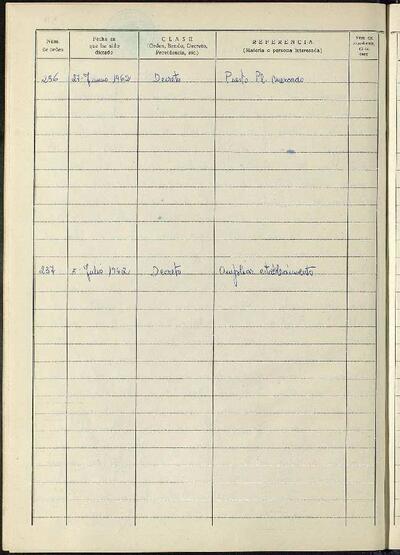 Núm. de orden
Fecha en que ha sido dictado
CLASE
(Orden, Bando, Decreto, Providencia, etc.)
REFERENCIA
(Materia o persona interesada)
236 27-Junio 1962 Decreto Puesto Pl. mercado
237 5 Julio 1962 Decreto Ampliar establecimiento